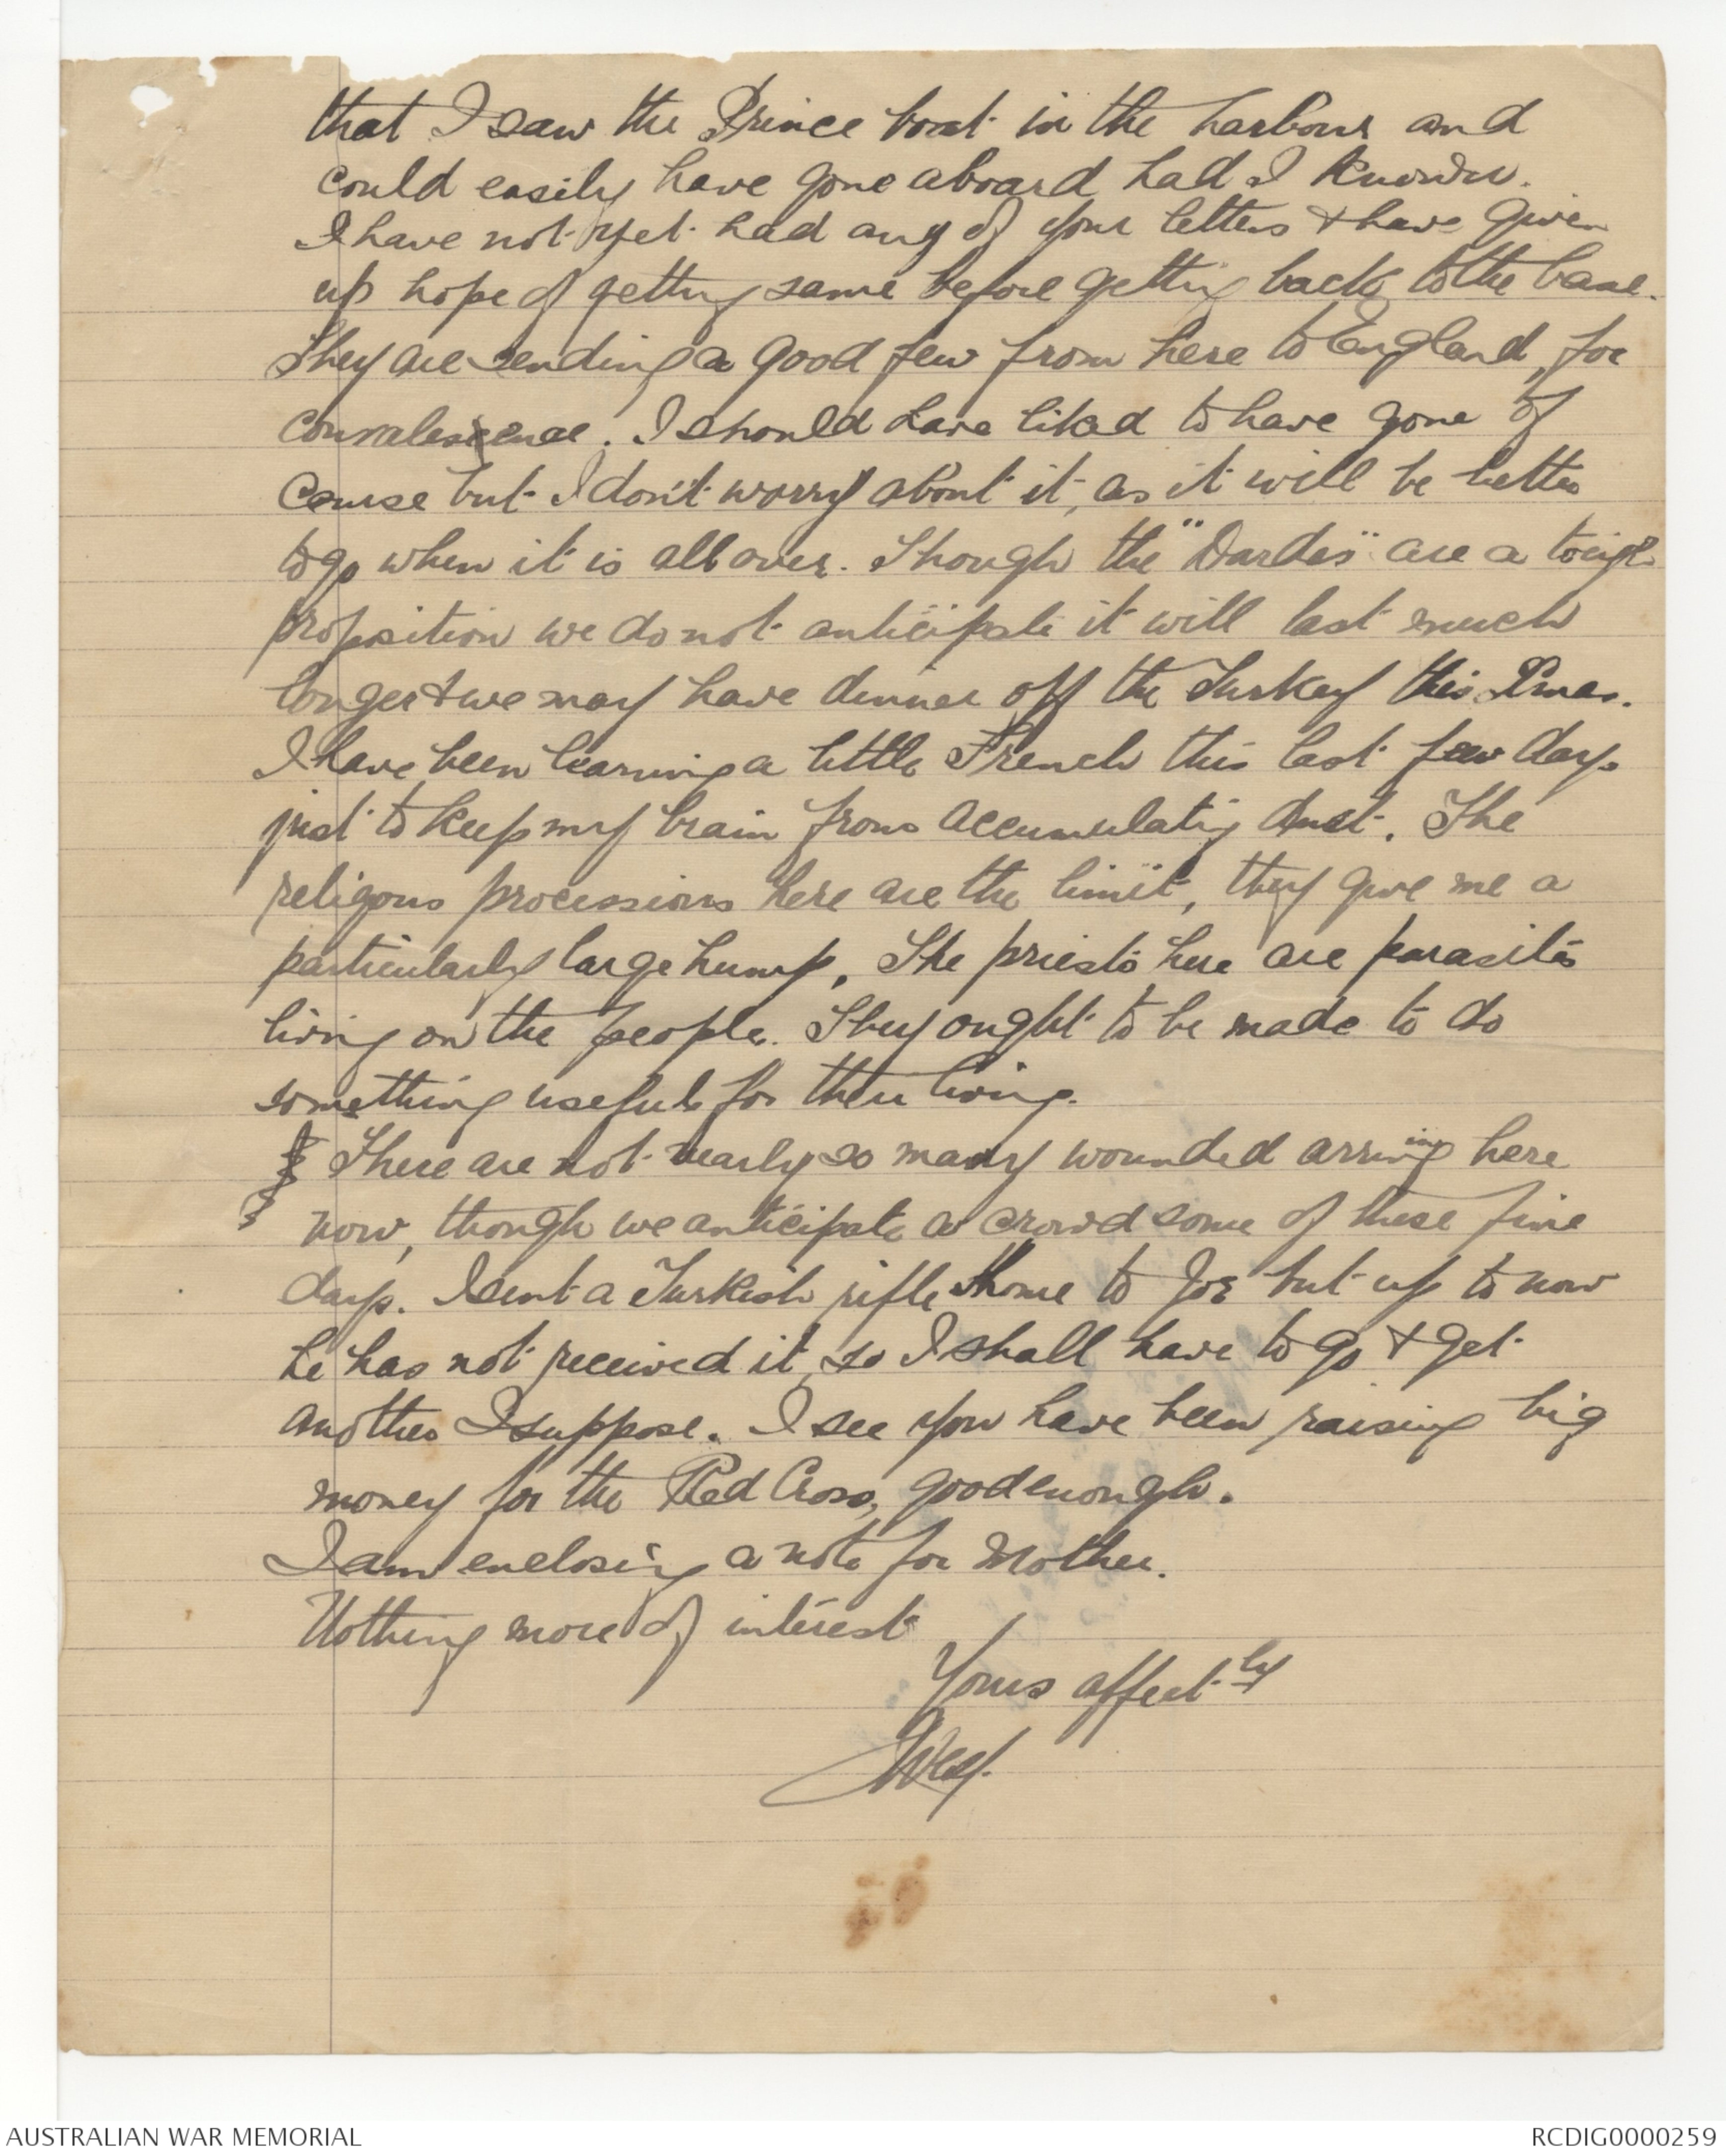 that I saw the Prince boat in the harbour and
could easily have gone aboard had I known.
I have not yet had any of your letters & have given
up hope of getting same before getting back to the base.
They are sending a good few from here to England, for
convalescence. I should have liked to have gone of
course but I don't worry about it, as it will be better
to go when it is all over. Though the "Dardes" are a tough
proposition we do not anticipate it will last much
longer & we may have dinner off the Turkey this Xmas.
I have been learning a little French this last few days
just to keep my brain from accumulating dust. The
religous processions here are the limit, they give me a
particularly large hump, The priests here are parasites
living on the people. They ought to be made to do
something useful for their living.
There are not nearly so many wounded arriving here
now, though we anticipate a crowd some of these fine
days. I sent a Turkish rifle home to Joe but up to now
he has not received it, so I shall have to go & get
another I suppose. I see you have been raising big
money for the Red Cross, good enough.
I am enclosing a note for Mother.
Nothing more of interest
Yours affectly
AUSTRALIAN WAR MEMORIAL
RCDIG0000259